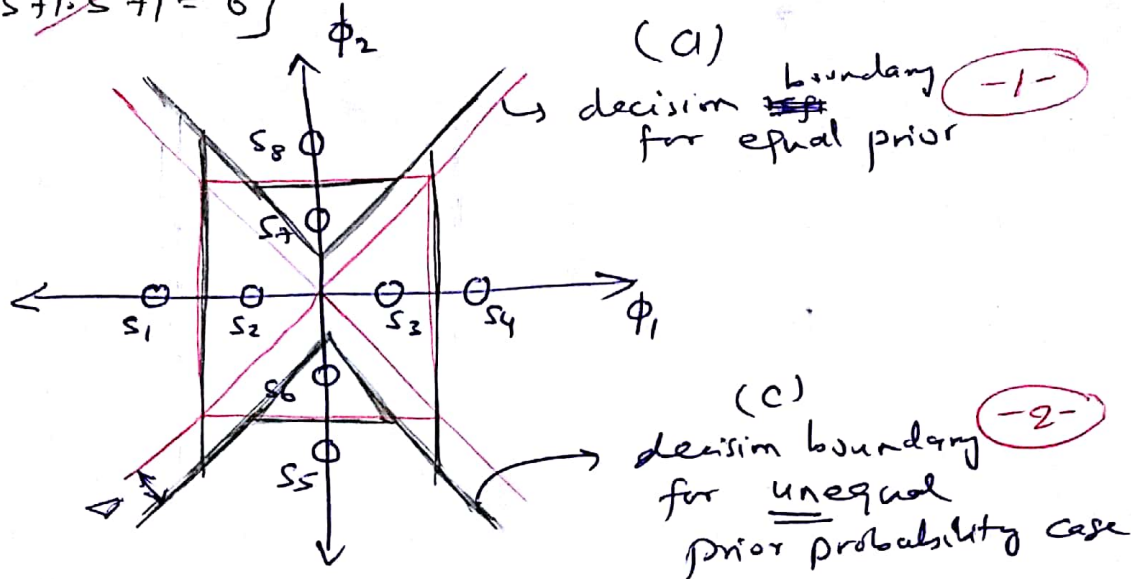 s+1. s+1 = 6]
ϕ2
(a)
↳ decision boundary
for equal prior
-1-
S8
S7
S1 S2 S3 S4
ϕ1
S6
S5
Δ
(c)
decision boundary
for unequal
prior probability case
-2-